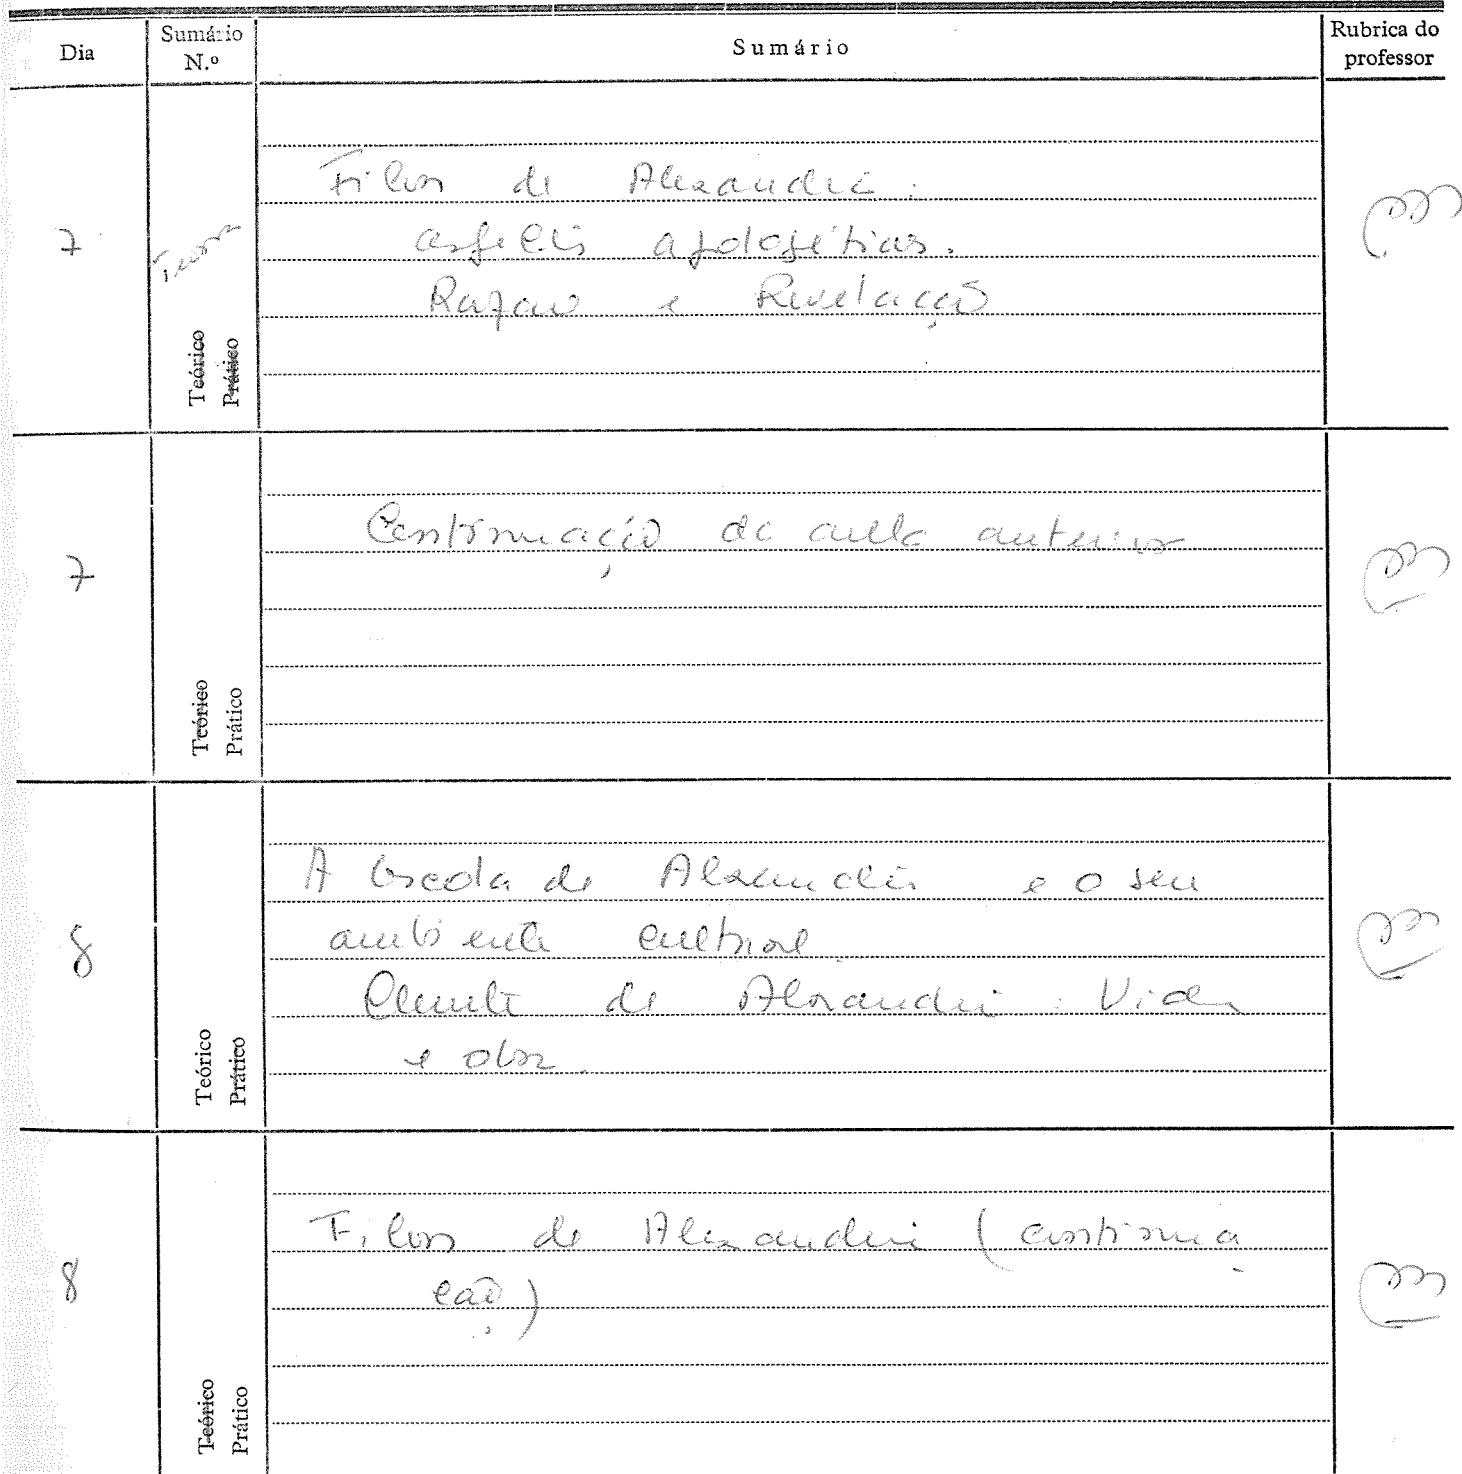 Dia
Sumário N.º
Sumário
Rubrica do professor
7
Teórico
Prático
Filon de Alexandria:
aspectos apologéticos.
Razão e Revelação
7
Teórico
Prático
Continuação da aula anterior
8
Teórico
Prático
A Escola de Alexandria e o seu
ambiente cultural
Clemente de Alexandria: Vida
e obra.
8
Teórico
Prático
Filon de Alexandria (continua
ção)